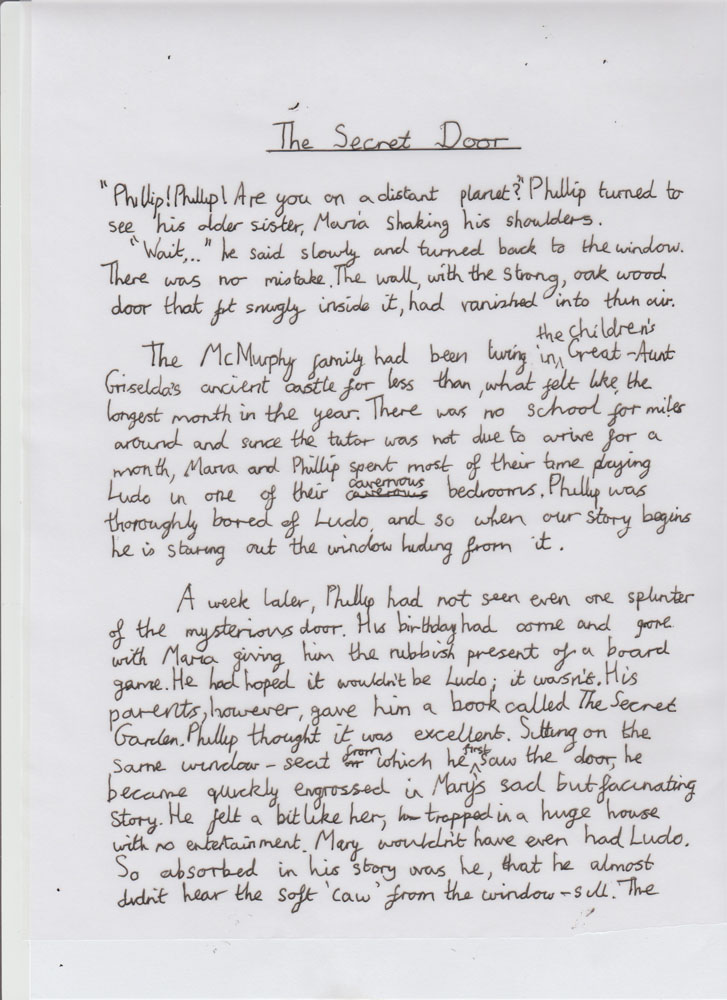 The Secret Door
"Phillip! Phillip! Are you on a distant planet?" Phillip turned to
see his older sister, Maria shaking his shoulders.
"Wait,.." he said slowly and turned back to the window.
There was no mistake. The wall, with the strong, oak wood
door that fit snugly inside it, had vanished into thin air.
The McMurphy family had been living in the children's Great-Aunt
Griselda's ancient castle for less than, what felt like, the
longest month in the year. There was no school for miles
around and since the tutor was not due to arrive for a
month, Maria and Phillip spent most of their time playing
Ludo in one of their cavernous bedrooms. Phillip was
thoroughly bored of Ludo, and so when our story begins
he is staring out the window hiding from it.
A week later, Phillip had not seen even one splinter
of the mysterious door. His birthday had come and gone
with Maria giving him the rubbish present of a board
game. He had hoped it wouldn't be Ludo; it wasn't. His
parents, however, gave him a book called The Secret
Garden. Phillip thought it was excellent. Sitting on the
same window-seat from which he first saw the door, he
became quickly engrossed in Mary's sad but facinating
story. He felt a bit like her, trapped in a huge house
with no entertainment. Mary wouldn't have even had Ludo.
So absorbed in his story was he, that he almost
didn't hear the soft 'caw' from the window-sill. The